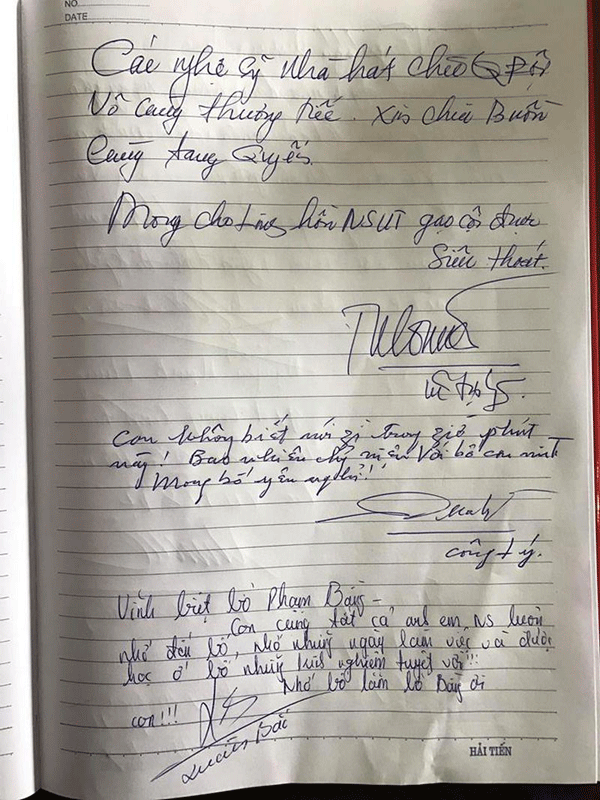 NO.
DATE
Các nghệ sỹ Nhà hát chèo QĐội
Vô cùng thương tiếc. Xin chia Buồn
Cùng tang Quyến.
Mong cho hồn NSƯT gạo cội được
Siêu thoát.
Con không biết nói gì trong giờ phút
này! Bao nhiêu kỷ niệm với bố con mình
Mong bố yên nghỉ!!
Công Lý.
Vĩnh biệt bố Phạm Bằng -
Con cùng tất cả anh em NS luôn
nhớ đến bố, nhớ những ngày làm việc và được
học ở bố những kinh nghiệm tuyệt vời!!!
Nhớ bố lắm bố Bằng ơi
con!!!
Xuân Bắc
HẢI TIẾN